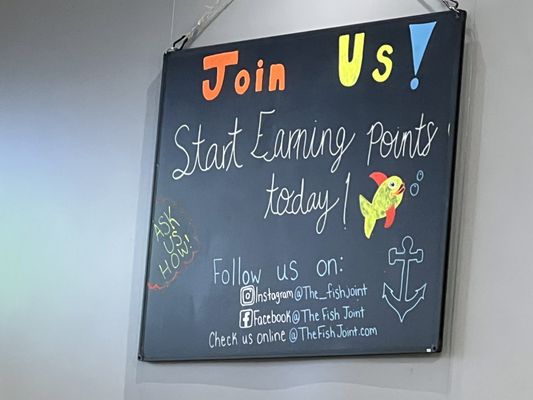 Join Us!
Start Earning points
today!
ASK
US
HOW!
Follow us on:
Instagram@The_fishjoint
Facebook@The Fish Joint
Check us online @TheFishJoint.com